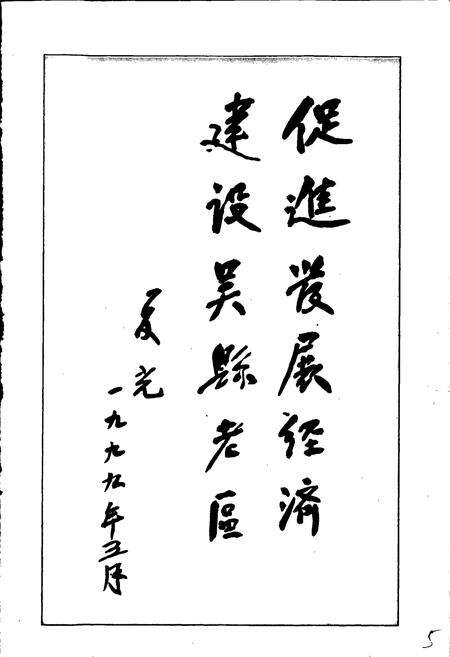 促進發展經濟
建设吴縣老區
夏光
一九九九年五月
5